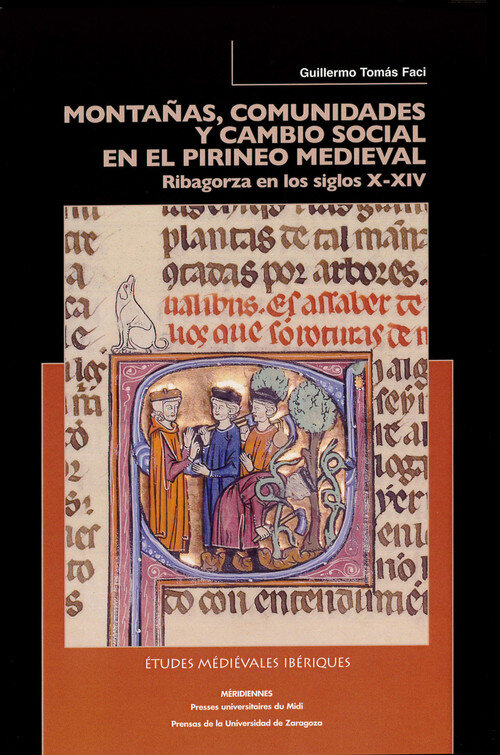 Guillermo Tomás Faci
MONTAÑAS, COMUNIDADES
Y CAMBIO SOCIAL
EN EL PIRINEO MEDIEVAL
Ribagorza en los siglos X-XIV
plantas de tal man
cadas por arbores.
ualibus. Es assaber de
que so roturas de
to con entendimie
ÉTUDES MÉDIÉVALES IBÉRIQUES
MÉRIDIENNES
Presses universitaires du Midi
Prensas de la Universidad de Zaragoza